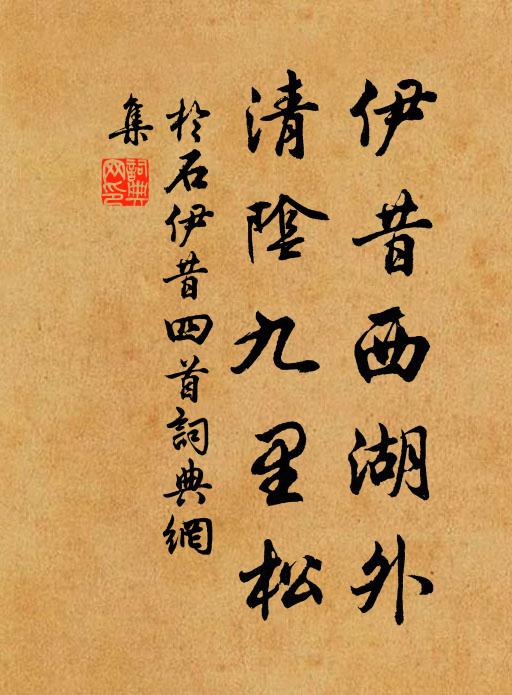 伊昔西湖外
清陰九里松
於石伊昔四首詞典網
集
詞典
网印